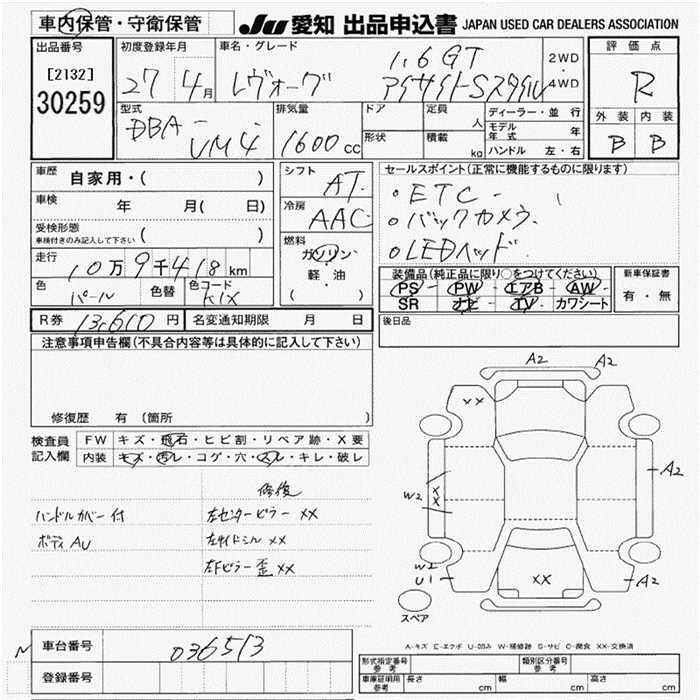 車内保管・守衛保管
JU 愛知 出品申込書 JAPAN USED CAR DEALERS ASSOCIATION
出品番号
[2132]
30259
初度登録年月
27 4月
車名・グレード
1.6GT
レヴォーグ アイサイトSスタイル
2WD
・
4WD
評価点
R
外装 内装
B B
型式
DBA-
VM4
排気量
1600cc
ドア
形状
定員
人
積載
kg
ディーラー・並行
モデル年式 年
ハンドル 左・右
車歴
自家用・( )
車検
年 月( 日)
受検形態
車検付きのみ記入して下さい ( )
走行
10万9千418km
色
パール
色替
色コード
K1X
シフト
AT
冷房
AAC
燃料
ガソリン
軽・油
( )
セールスポイント(正常に機能するものに限ります)
・ETC
・バックカメラ
・LEDヘッド
装備品(純正品に限り○をつけてください)
PS PW エアB AW
SR ナビ TV カワシート
新車保証書
有・無
後日品
R券 13,610円
名変通知期限 月 日
注意事項申告欄(不具合内容等は具体的に記入して下さい)
修復歴 有 〔箇所 〕
検査員
記入欄
FW キズ・飛石・ヒビ割・リペア跡・X要
内装 キズ・汚レ・コゲ・穴・スレ・キレ・破レ
修復
ハンドルカバー付 左センターピラー XX
ボディAU 左サイドシル XX
左Fピラー歪XX
A2 A2
XX
W2 XX
A2
W2
U1
XX
A2
スペア
A-キズ E-エクボ U-凹み W-補修跡 S-サビ C-腐食 XX-交換済
N
車台番号 036513
登録番号
形式指定番号
参考
類別区分番号
参考
車庫証明用
参考
長さ cm 幅 cm 高さ cm